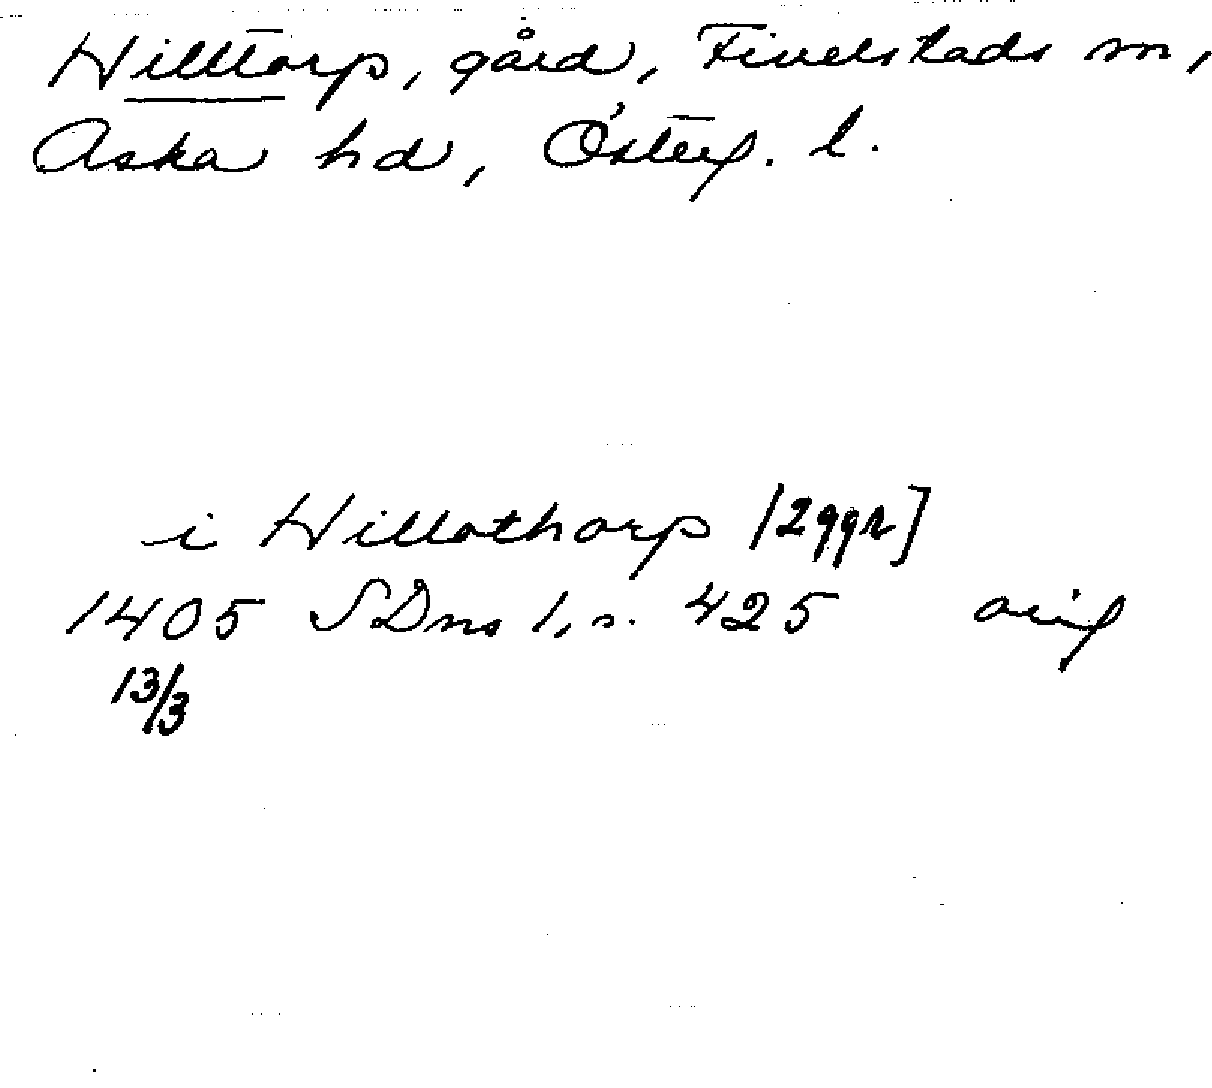 Hilltorp, gård, Fivelstads sn,
Aska hd, Österg. l.
i Hillothorp [2ggr]
1405 SDns 1, s. 425 orig
13/3